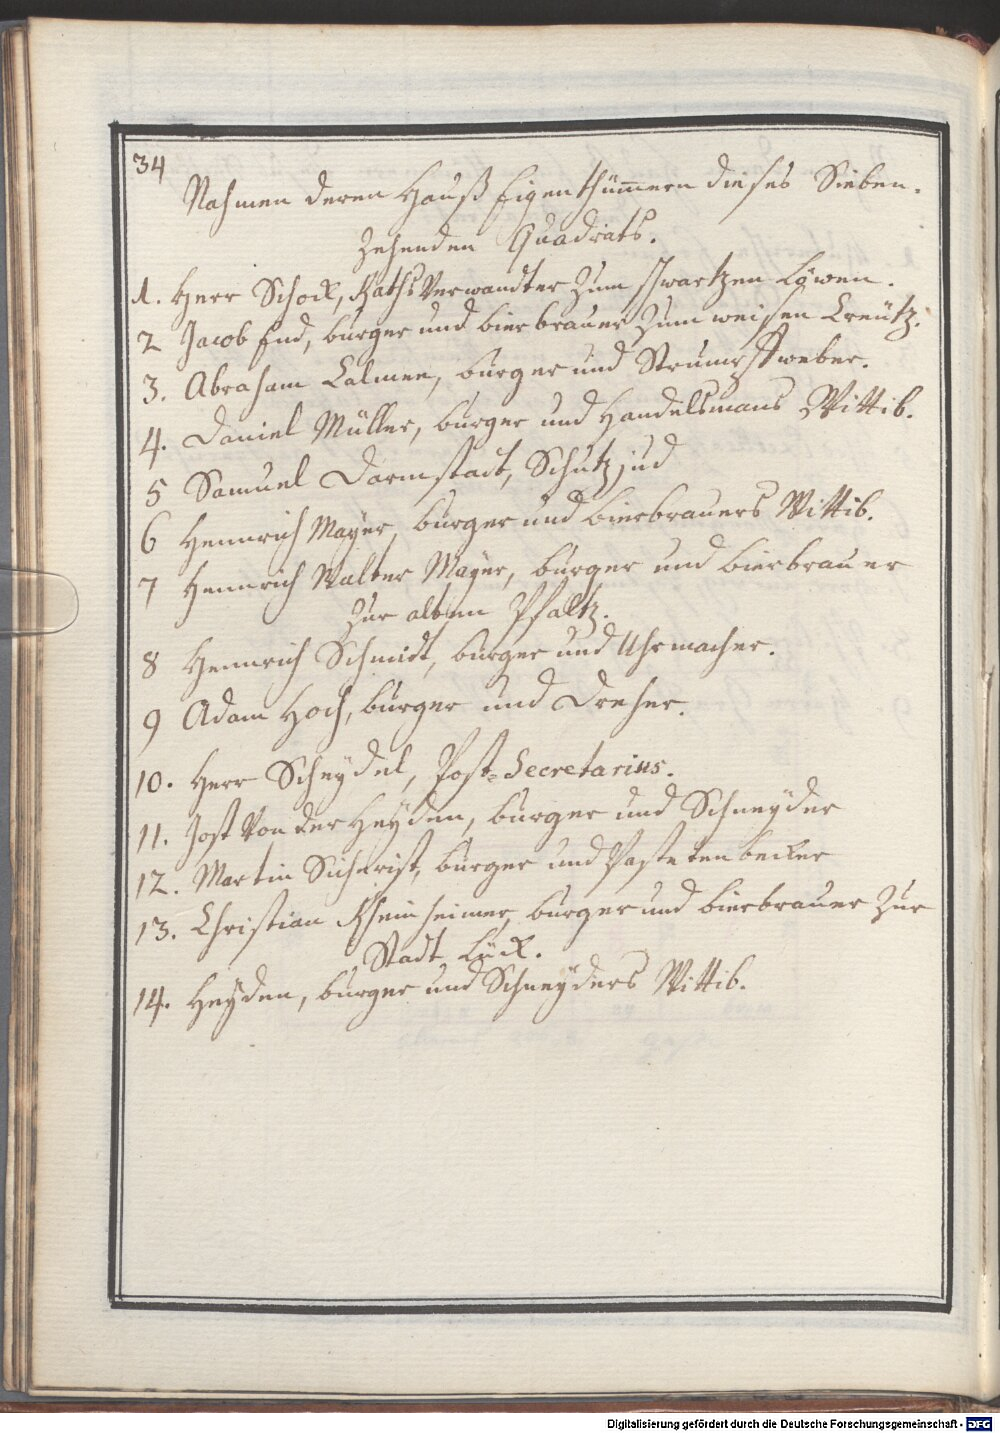 34
Nahmen deren Hauß Eigenthümern dieses Sieben-
Zehenden Quadrats.
1. Herr Schock, Raths Verwandter zum schwartzen Löwen.
2 Jacob End, burger und bierbrauer zum weisen Creütz.
3. Abraham Calmee, burger und Strumpffweber.
4. Daniel Müller, burger und Handelsmans Wittib.
5 Samuel Darmstadt, Schutz jud
6 Hennrich Mayer, burger und bierbrauers Wittib.
7 Hennrich Walter Mayer, burger und bierbrauer
Zur alten Pfaltz.
8 Hennrich Schmidt, burger und Uhrmacher.
9 Adam Hoch, burger und Dreher.
10. Herr Scheydel, Post-Secretarius.
11. Jost Von der Heyden, burger und Schneyder
12. Martin burger und Pasteten becker
13. Christian Rheinheimer, burger und bierbrauer Zur
Stadt Lück.
14. Heyden, burger und Schneyders Wittib.
Digitalisierung gefördert durch die Deutsche Forschungsgemeinschaft - DFG